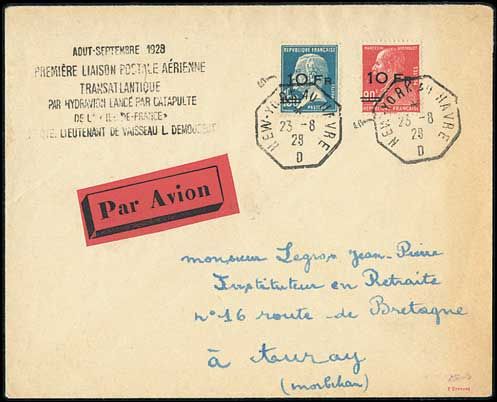 AOUT-SEPTEMBRE 1928
PREMIÈRE LIAISON POSTALE AÉRIENNE
TRANSATLANTIQUE
PAR HYDRAVION LANCÉ PAR CATAPULTE
DE L'"ILE-DE-FRANCE"
LIEUTENANT DE VAISSEAU L. DEMOUGEOT
REPUBLIQUE FRANÇAISE
10 Fr.
10 Fr.
NEW-YORK AU HAVRE
23-8
28
D
NEW-YORK AU HAVRE
23-8
28
D
Par Avion
monsieur Legros Jean-Pierre
Instituteur en Retraite
n°16 route de Bretagne
à Auray
(morbihan)